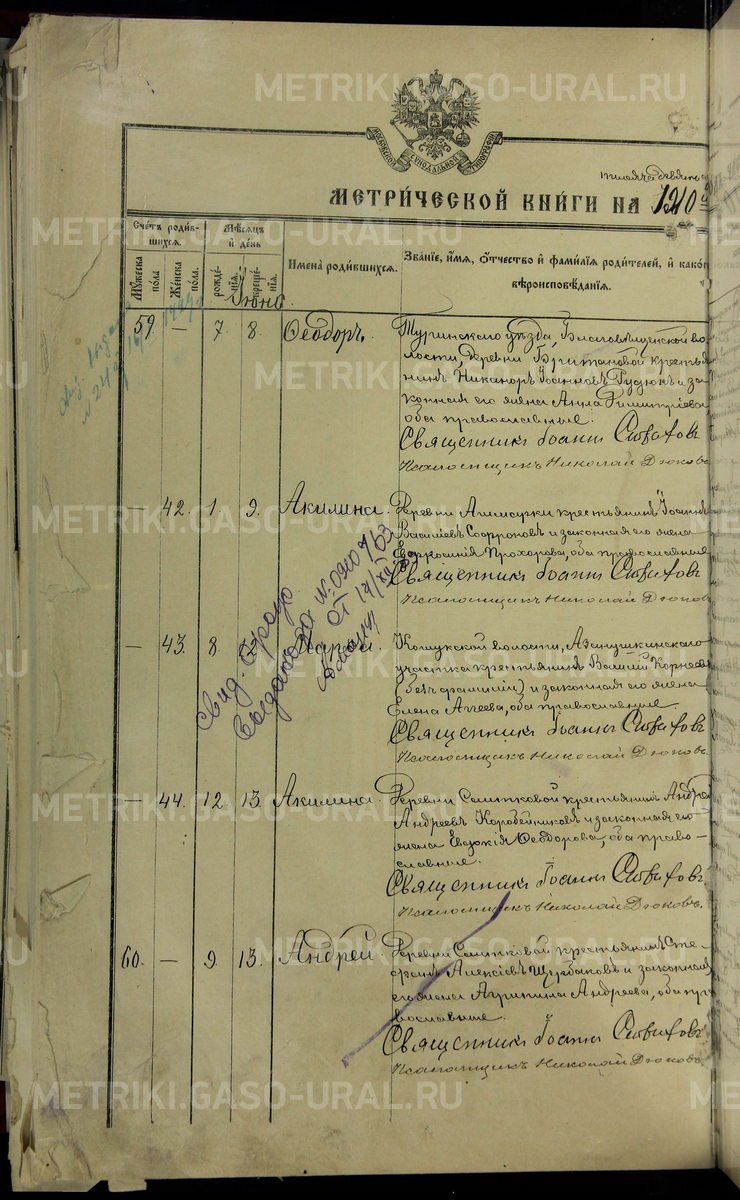 МОСКОВСКОЙ СѴНОДАЛЬНОЙ ТИПОГРАФІИ
тысяча девять
МЕТРИ́ЧЕСКОЙ КНИ́ГИ НА 1910
Сче́тъ роди́вшихся.
Мꙋ́жеска по́ла.
Же́нска по́ла.
Мѣ́сяцъ и де́нь
рожде́нія.
креще́нія.
Имена̀ роди́вшихся.
Зва́ніе, и́мя, о́тчество и фами́лія роди́телей, и како́г
вѣроисповѣ́данія.
Іюнь.
59 — 7. 8. Ѳеодоръ.
Туринскаго уѣзда, Благовѣщенской во-
лости, деревни Британовой крестья-
нинъ Никаноръ Іоанновъ Гудюкъ и за-
конная его жена Анна Димитріева
оба православные.
Священникъ Іоаннъ
Псаломщикъ Николай Дюковъ.
— 42. 1. 9. Акилина.
Деревни крестьянинъ Іоаннъ
Василіевъ Софроновъ и законная его жена
Евфросинія Прохорова, оба православные
Священникъ Іоаннъ
Псаломщикъ Николай Дюковъ
— 43. 8. Марѳа.
Кошукской волости, Ажнушкинскаго
участка крестьянинъ Василій Корнеевъ
(безъ фамиліи) и законная его жена
Елена Аггеева, оба православные.
Священникъ Іоаннъ
Псаломщикъ Николай Дюковъ.
Свид. о брако
Выдано № 0920763
от 17/XII
— 44. 12. 13. Акилина.
Деревни Саитковой крестьянинъ Андрей
Андреевъ Коробейниковъ и законная его
жена Евдокія Ѳеодорова, оба право-
славные.
Священникъ Іоаннъ
Псаломщикъ Николай Дюковъ.
60. — 9. 13. Андрей.
Деревни Саитковой крестьянинъ Сте-
фанъ Алексіевъ Щербаковъ и законная
его жена Агриппина Андреева, оба пра
вославные.
Священникъ Іоаннъ
Псаломщикъ Николай Дюковъ.
METRIKI.GASO-URAL.RU